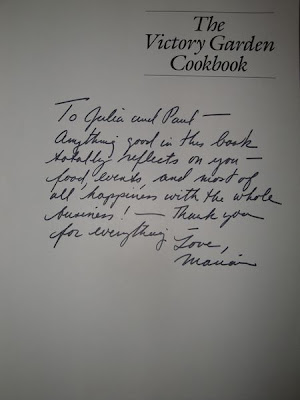 The
Victory Garden
Cookbook
To Julia and Paul —
Anything good in this book
totally reflects on you —
food, events, and most of
all, happiness with the whole
business! — Thank you
for everything —
Love,
Marian